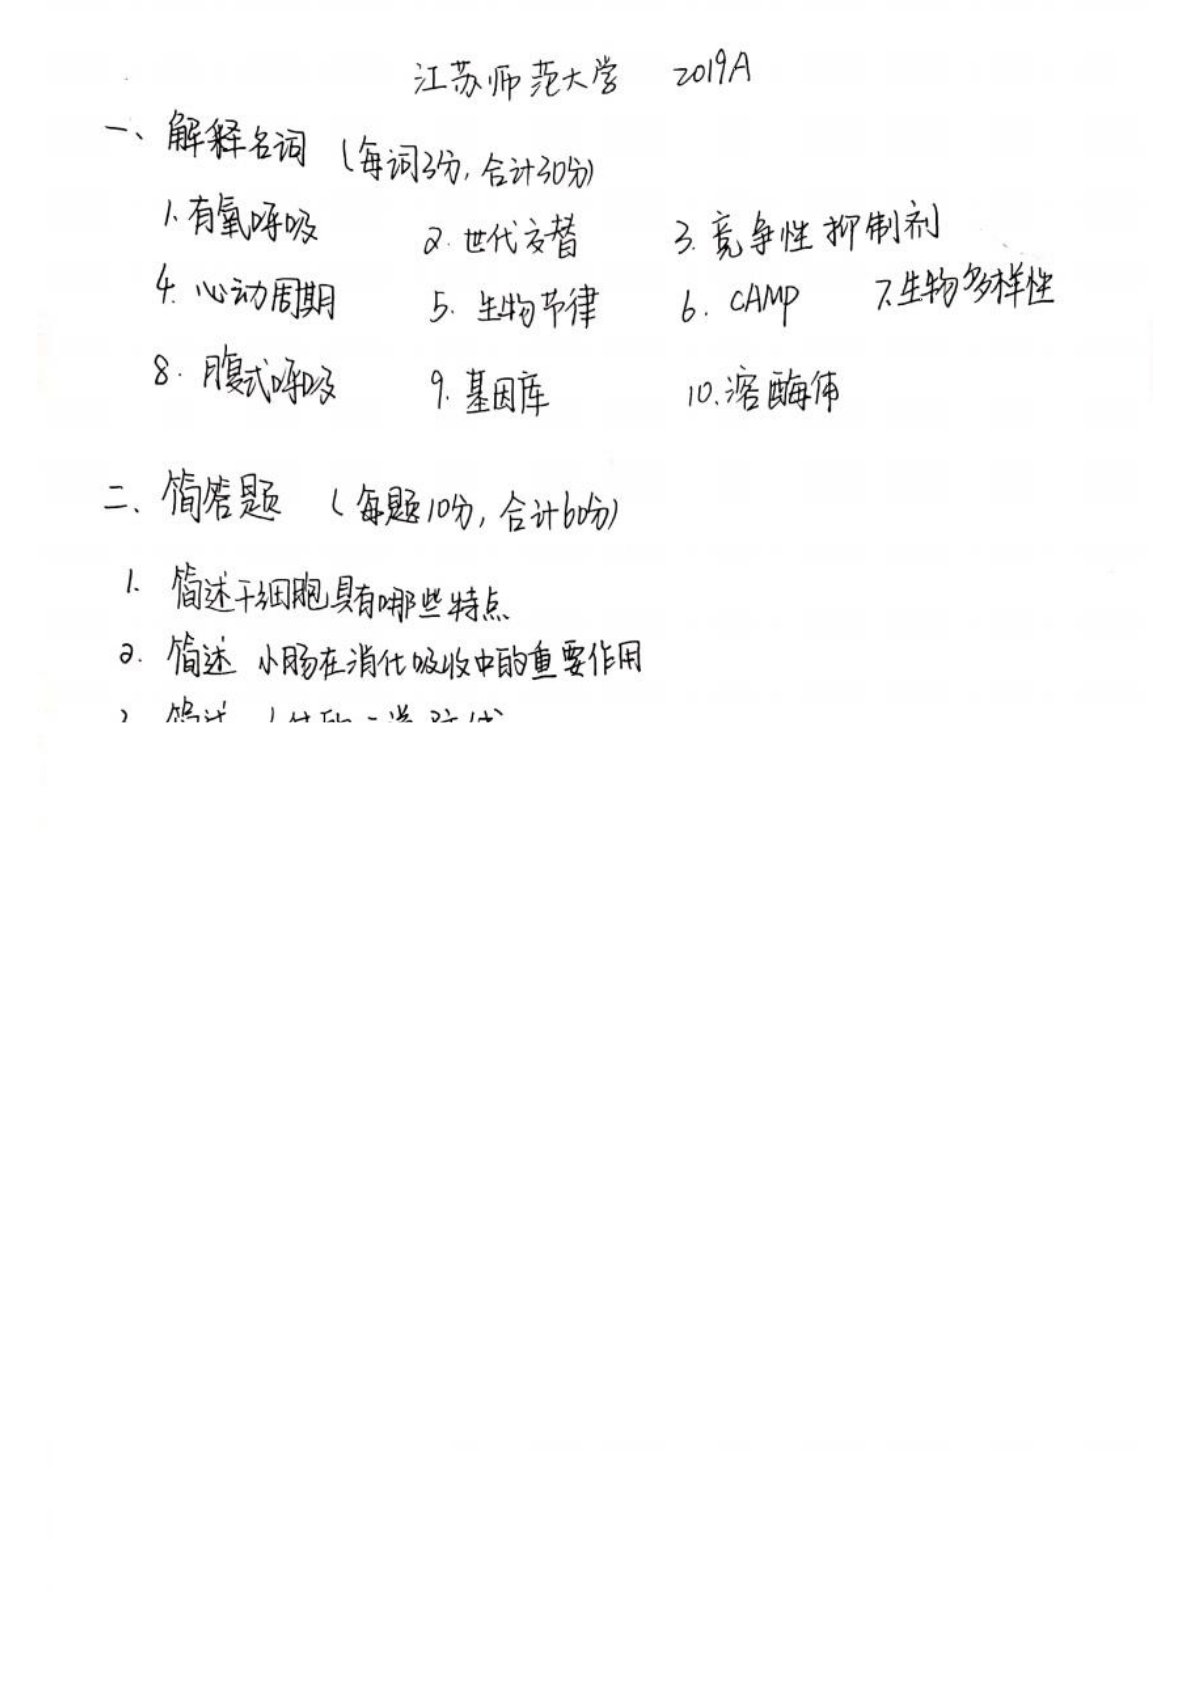 江苏师范大学 2019A
一、解释名词 (每词3分,合计30分)
1.有氧呼吸 2.世代交替 3.竞争性抑制剂
4.心动周期 5.生物节律 6.CAMP 7.生物多样性
8.腹式呼吸 9.基因库 10.溶酶体
二、简答题 (每题10分,合计60分)
1.简述干细胞具有哪些特点
2.简述 小肠在消化吸收中的重要作用
简述